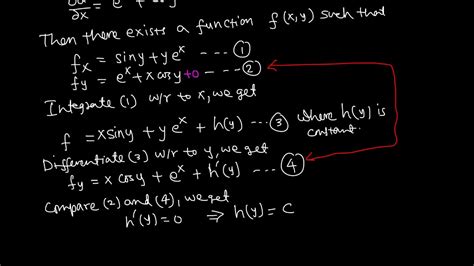 ∂x = e
Then there exists a function f(x,y) such that
f_x = siny + ye^x ---- ①
f_y = e^x + x cosy +0 - ---- ②
Integrate (1) w/r to x, we get
f = xsiny + ye^x + h(y) --- ③ where h(y) is constant.
Differentiate (3) w/r to y, we get
f_y = x cosy + e^x + h'(y) --- ④
Compare (2) and (4), we get
h'(y)=0 ⇒ h(y)= C